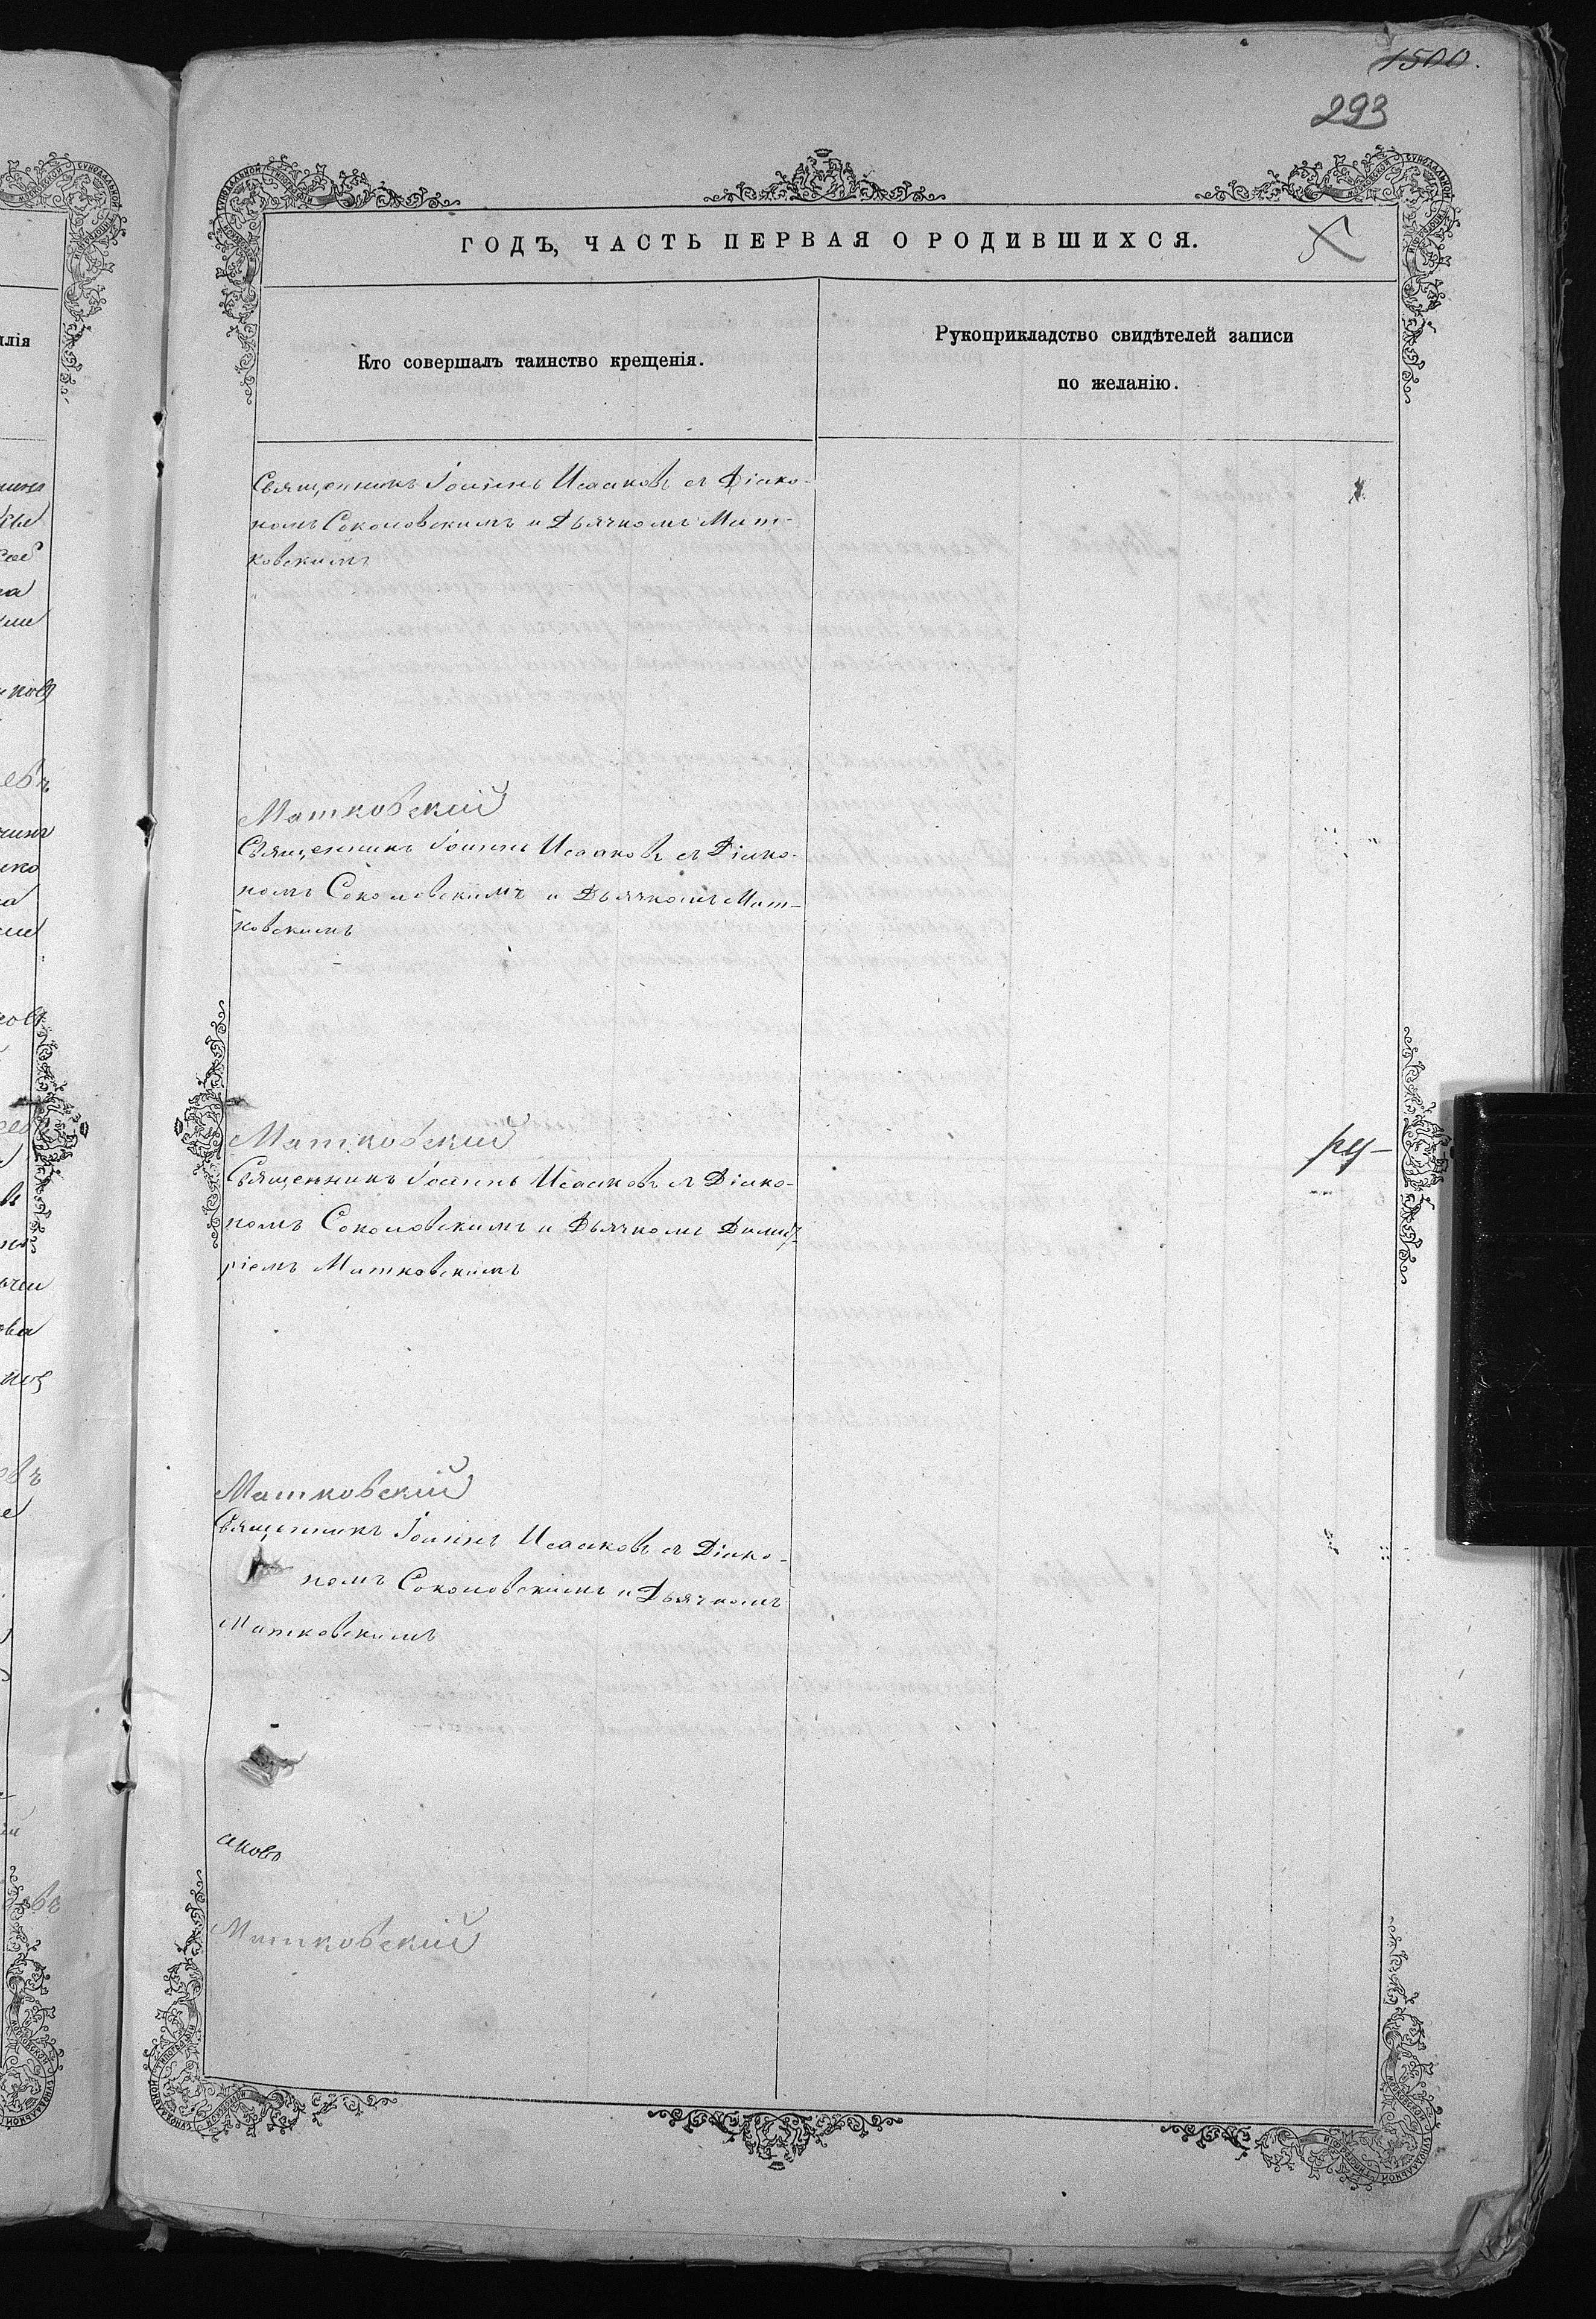 1500.
293
ГОДЪ, ЧАСТЬ ПЕРВАЯ О РОДИВШИХСЯ.
5
Кто совершалъ таинство крещенія.
Рукоприкладство свидѣтелей записи
по желанію.
Священникъ Іоаннъ Исааковъ съ Діако-
номъ Соколовскимъ и Дьячкомъ Мат-
ковскимъ
Матковскій
Священникъ Іоаннъ Исааковъ съ Діако-
номъ Соколовскимъ и Дьячкомъ Мат-
ковскимъ
Матковскій
Священникъ Іоаннъ Исааковъ съ Діако-
номъ Соколовскимъ и Дьячкомъ Димит-
ріемъ Матковскимъ
Матковскій
Священникъ Іоаннъ Исааковъ съ Діако-
номъ Соколовскимъ и Дьячкомъ
Матковскимъ
аковъ
Матковскій